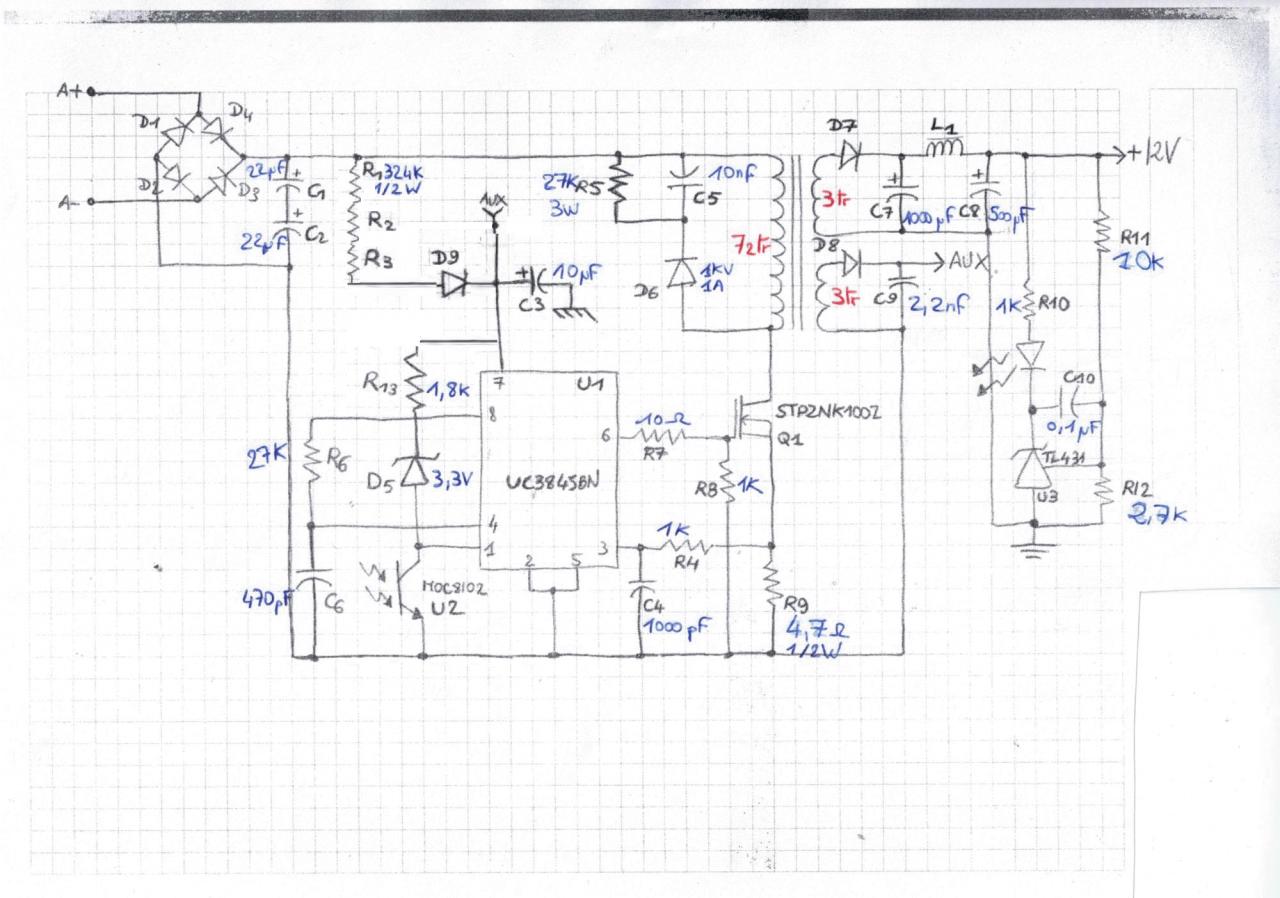 A+
D1
D4
A-
D2
D3
22µF
C1
22µF
C2
R1 324K
1/2W
R2
R3
AUX
D9
10µF
C3
27K R5
3W
10nf
C5
72tr
D6
1KV
1A
D7
L1
+12V
3tr
C7
1000µF
C8
500µF
D8
AUX
3tr
C9
2,2nf
R11
10K
1K
R10
C10
0,1µF
TL431
U3
R12
2,7K
R13
1,8K
7
U1
8
27K
R6
D5
3,3V
UC3845BN
6
10Ω
R7
STP2NK100Z
Q1
R8
1K
4
1
3
2
5
1K
R4
470pF
C6
MOC8102
U2
C4
1000pF
R9
4,7Ω
1/2W